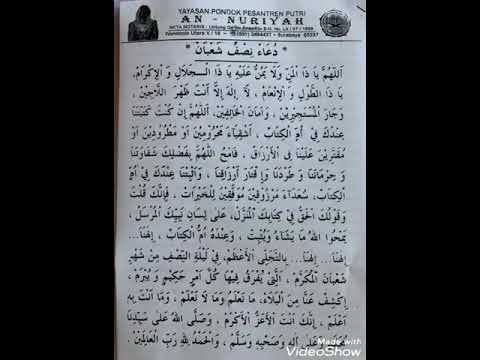 YAYASAN PONDOK PESANTREN PUTRI
AN - NURIYAH
Wonocolo Utara V / 18 - ☎ (031) 8494437 - Surabaya 60237
* دُعَاءُ نِصْفُ شَعْبَانْ *
اَللّٰهُمَّ يَا ذَا الْمَنِّ وَلَا يَمُنُّ عَلَيْهِ يَا ذَا الْجَلَالِ وَ الْإِكْرَامِ،
يَا ذَا الطَّوْلِ وَ الْاِنْعَامِ، لَا إِلٰهَ إِلَّا أَنْتَ ظَهْرَ اللَّاجِيْنَ،
وَجَارَ الْمُسْتَجِيْرِيْنَ، وَأَمَانَ الْخَائِفِيْنَ، اَللّٰهُمَّ إِنْ كُنْتَ كَتَبْتَنَا
عِنْدَكَ فِيْ أُمِّ الْكِتَابِ، أَشْقِيَاءَ مَحْرُوْمِيْنَ اَوْ مَطْرُوْدِيْنَ أَوْ
مُقَتَّرِيْنَ عَلَيْنَا فِى الْأَرْزَاقِ، فَامْحُ اللّٰهُمَّ بِفَضْلِكَ شَقَاوَتَنَا
وَ حِرْمَانَنَا وَ طَرْدَنَا وَ إِقْتَارَ أَرْزَاقِنَا، وَأَثْبِتْنَا عِنْدَكَ فِيْ أُمِّ
الْكِتَابِ، سُعَدَاءَ مَرْزُوْقِيْنَ مُوَفَّقِيْنَ لِلْخَيْرَاتِ، فَإِنَّكَ قُلْتَ
وَقَوْلُكَ الْحَقُّ فِيْ كِتَابِكَ الْمُنْزَلِ، عَلٰى لِسَانِ نَبِيِّكَ الْمُرْسَلِ،
يَمْحُوا اللّٰهُ مَا يَشَاءُ وَيُثْبِتُ، وَعِنْدَهُ أُمُّ الْكِتَابِ، إِلٰهَنَا
إِلٰهَنَا... إِلٰهَنَا... بِالتَّجَلِّى الْأَعْظَمِ، فِيْ لَيْلَةِ النِّصْفِ مِنْ شَهْرِ
شَعْبَانَ الْمُكَرَّمِ، الَّتِيْ يُفْرَقُ فِيْهَا كُلُّ اَمْرٍ حَكِيْمٍ وَ يُبْرَمُ،
اِكْشِفْ عَنَّا مِنَ الْبَلَاءِ، مَا نَعْلَمُ وَمَا لَا نَعْلَمُ، وَمَا أَنْتَ بِهِ
أَعْلَمُ، إِنَّكَ أَنْتَ الْأَعَزُّ الْأَكْرَمُ، وَصَلَّى اللّٰهُ عَلٰى سَيِّدِنَا
وَعَلٰى اٰلِهِ وَصَحْبِهِ وَسَلَّمَ، وَالْحَمْدُ لِلّٰهِ رَبِّ الْعَالَمِيْنَ
Made with
VideoShow